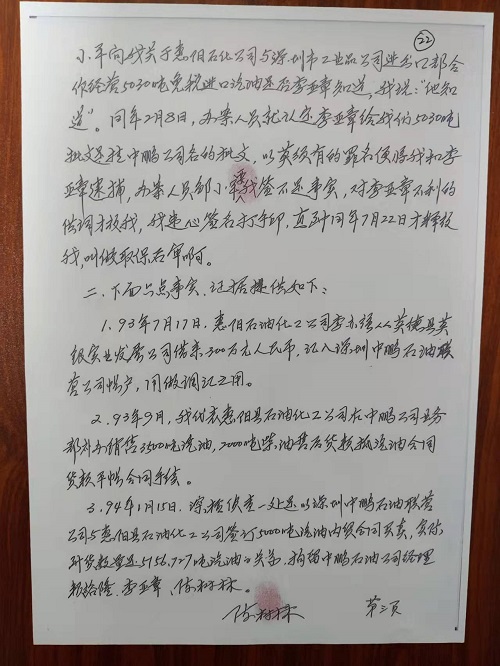 22
小军问我关于惠阳石化公司与深圳市工业品公司进出口部合
作经营5030吨免税进口汽油是否李亚章知道，我说："他知
道"。同年2月8日，办案人员就认定李亚章给我的5030吨
批文是挂中鹏公司名的批文，以莫须有的罪名使得我和李
亚章逮捕，办案人员邹小军要我签不是事实，对李亚章不利的
供词才放我，我违心签名打手印，直到同年7月22日才释放
我，叫做取保后审啊。
二、下面六点事实、证据提供如下：
1.93年7月17日，惠阳石油化工公司李永强从英德县英
银实业发展公司借来300万元人民币，汇入深圳中鹏石油联
营公司帐户，用做调汇之用。
2.93年9月，我代表惠阳县石油化工公司在中鹏公司业务
部补办销售3500吨汽油，2000吨柴油售后货款抵汽油合同
货款平帐合同手续。
3.94年1月15日，深检侦查一处是以深圳中鹏石油联营
公司与惠阳县石油化工公司签订5000吨汽油内贸合同买卖，实际
到货数量是5156.727吨汽油的关系，拘留中鹏石油公司经理
赖裕隆、李亚章、陈树林。
陈树林 第三页